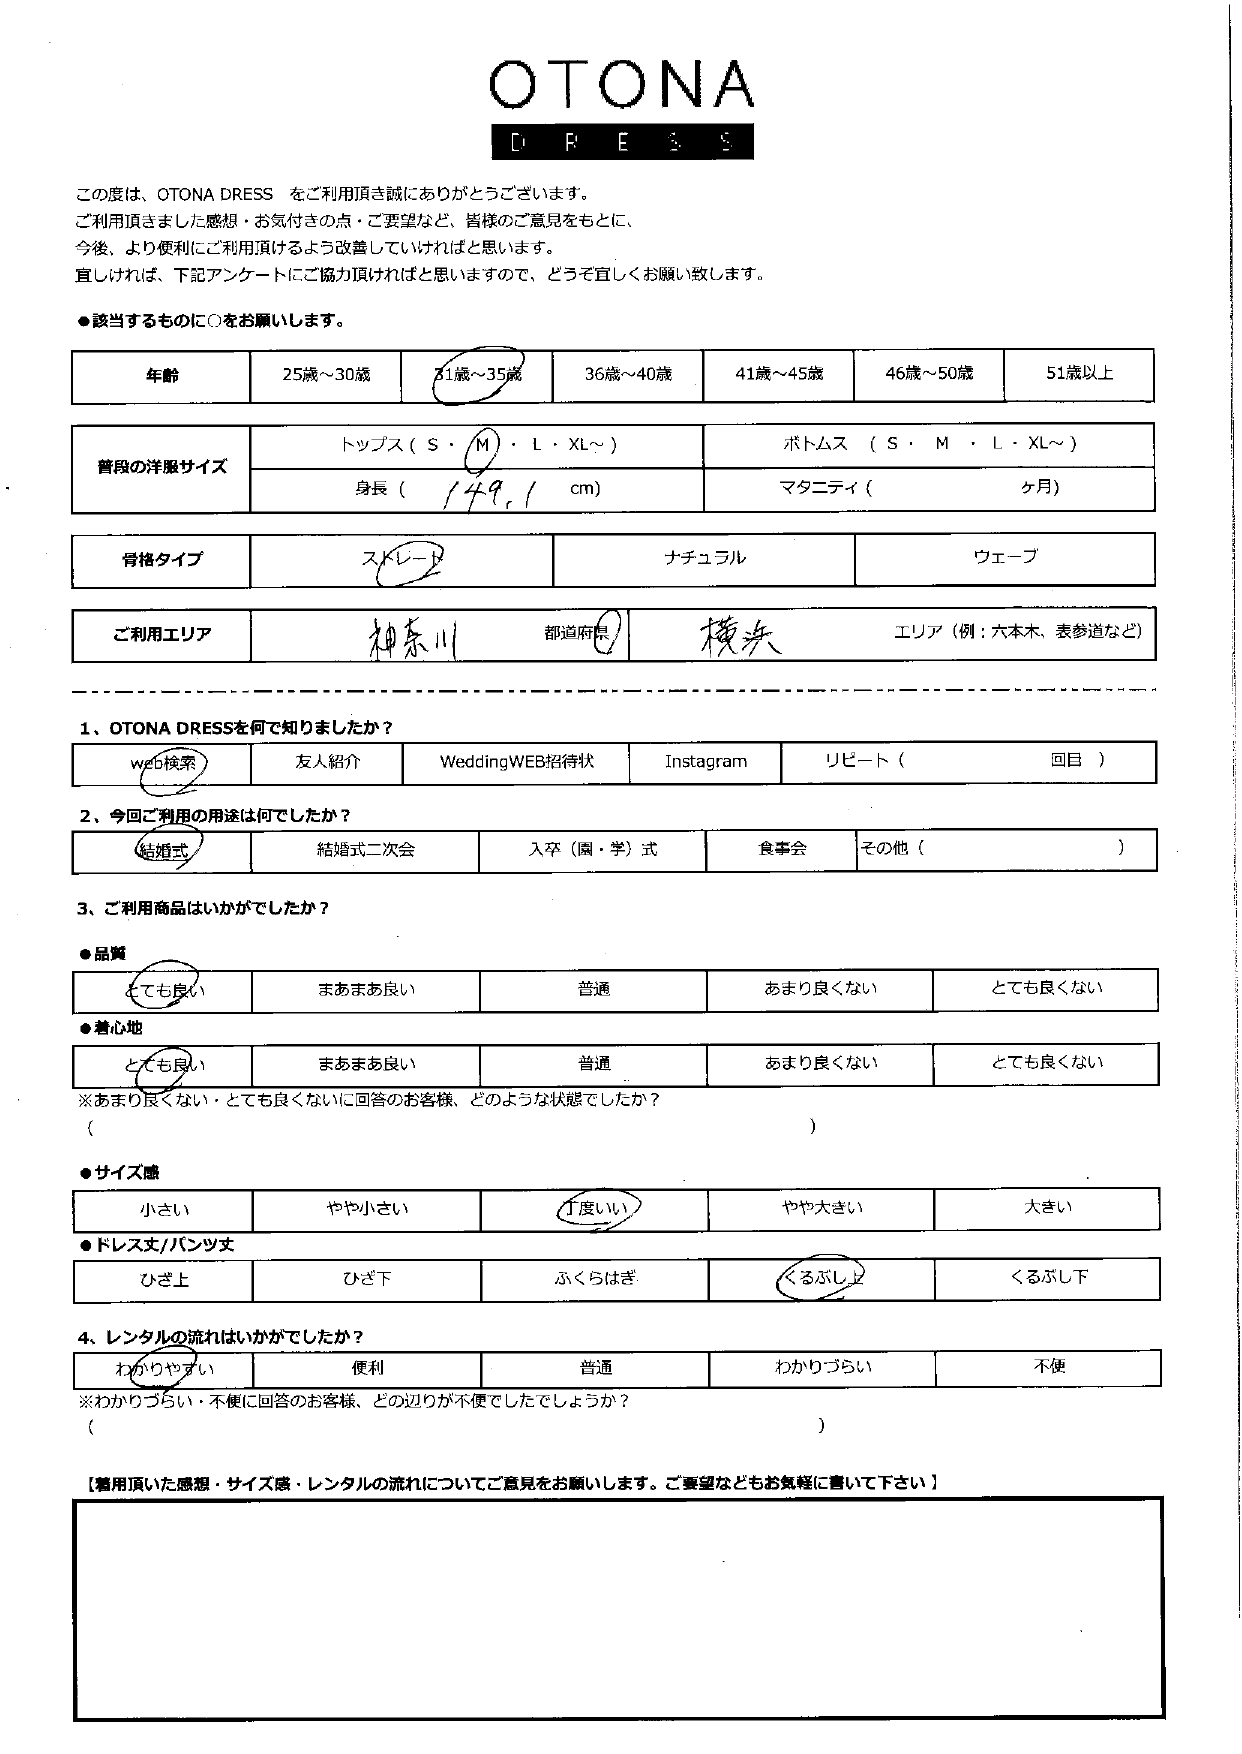 OTONA
DRESS
この度は、OTONA DRESS をご利用頂き誠にありがとうございます。
ご利用頂きました感想・お気付きの点・ご要望など、皆様のご意見をもとに、
今後、より便利にご利用頂けるよう改善していければと思います。
宜しければ、下記アンケートにご協力頂ければと思いますので、どうぞ宜しくお願い致します。
●該当するものに○をお願いします。
年齢 25歳～30歳 31歳～35歳 36歳～40歳 41歳～45歳 46歳～50歳 51歳以上
普段の洋服サイズ トップス ( S ・ M ・ L ・ XL～ ) ボトムス ( S ・ M ・ L ・ XL～ )
身長 ( 149.1 cm) マタニティ ( ヶ月)
骨格タイプ ストレート ナチュラル ウェーブ
ご利用エリア 神奈川 都道府県 横浜 エリア（例：六本木、表参道など）
1、OTONA DRESSを何で知りましたか？
web検索 友人紹介 WeddingWEB招待状 Instagram リピート ( 回目 )
2、今回ご利用の用途は何でしたか？
結婚式 結婚式二次会 入卒（園・学）式 食事会 その他 ( )
3、ご利用商品はいかがでしたか？
●品質
とても良い まあまあ良い 普通 あまり良くない とても良くない
●着心地
とても良い まあまあ良い 普通 あまり良くない とても良くない
※あまり良くない・とても良くないに回答のお客様、どのような状態でしたか？
( )
●サイズ感
小さい やや小さい 丁度いい やや大きい 大きい
●ドレス丈/パンツ丈
ひざ上 ひざ下 ふくらはぎ くるぶし上 くるぶし下
4、レンタルの流れはいかがでしたか？
わかりやすい 便利 普通 わかりづらい 不便
※わかりづらい・不便に回答のお客様、どの辺りが不便でしたでしょうか？
( )
【着用頂いた感想・サイズ感・レンタルの流れについてご意見をお願いします。ご要望などもお気軽に書いて下さい】